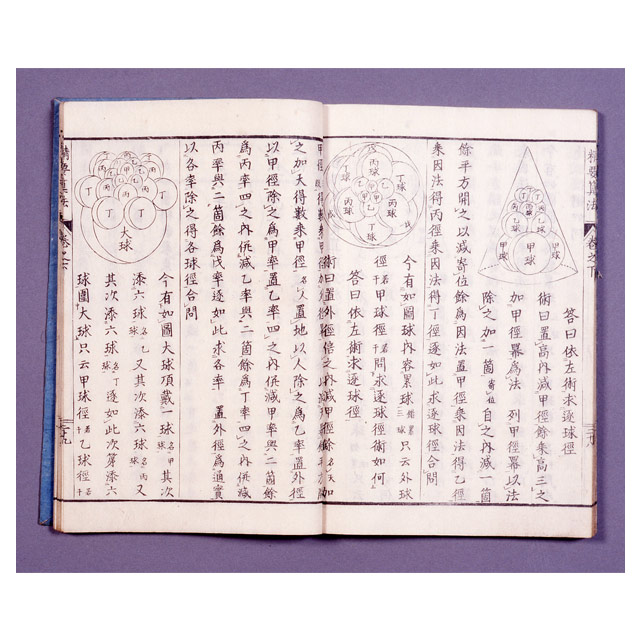 精要算法 卷之下
甲球 甲球 甲球
答曰依左術求逐球徑
術曰置高内減甲徑餘乗高三之
加甲徑冪為法 列甲徑冪以法
除之加一箇寄位自之内減一箇
餘平方開之以減寄位餘為因法置甲徑乗因法得乙徑
乗因法得丙徑乗因法得丁徑逐如此求逐球徑合問
丙球 丁球 丙球 丁球
今有如圖球内容累球 只云外球
徑若干甲球徑若干問求逐球徑術如何
答曰依左術求逐球徑
之加天得數乗甲徑名人置地以人除之為乙率置外徑
以甲徑除之為甲率置乙率四之内併減甲率與二箇餘
為丙率四之内併減乙率與二箇餘為丁率四之内併減
丙率與二箇餘為戊率逐如此求各率 置外徑為通實
以各率除之得各球徑合問
丙 丙 丁 丁 丁 丁 大球
今有如圖大球頂戴一球名甲其次
添六球名乙又其次添六球名丙又
其次添六球名丁逐如此次第添六
球圍大球只云甲球徑若干乙球徑若干